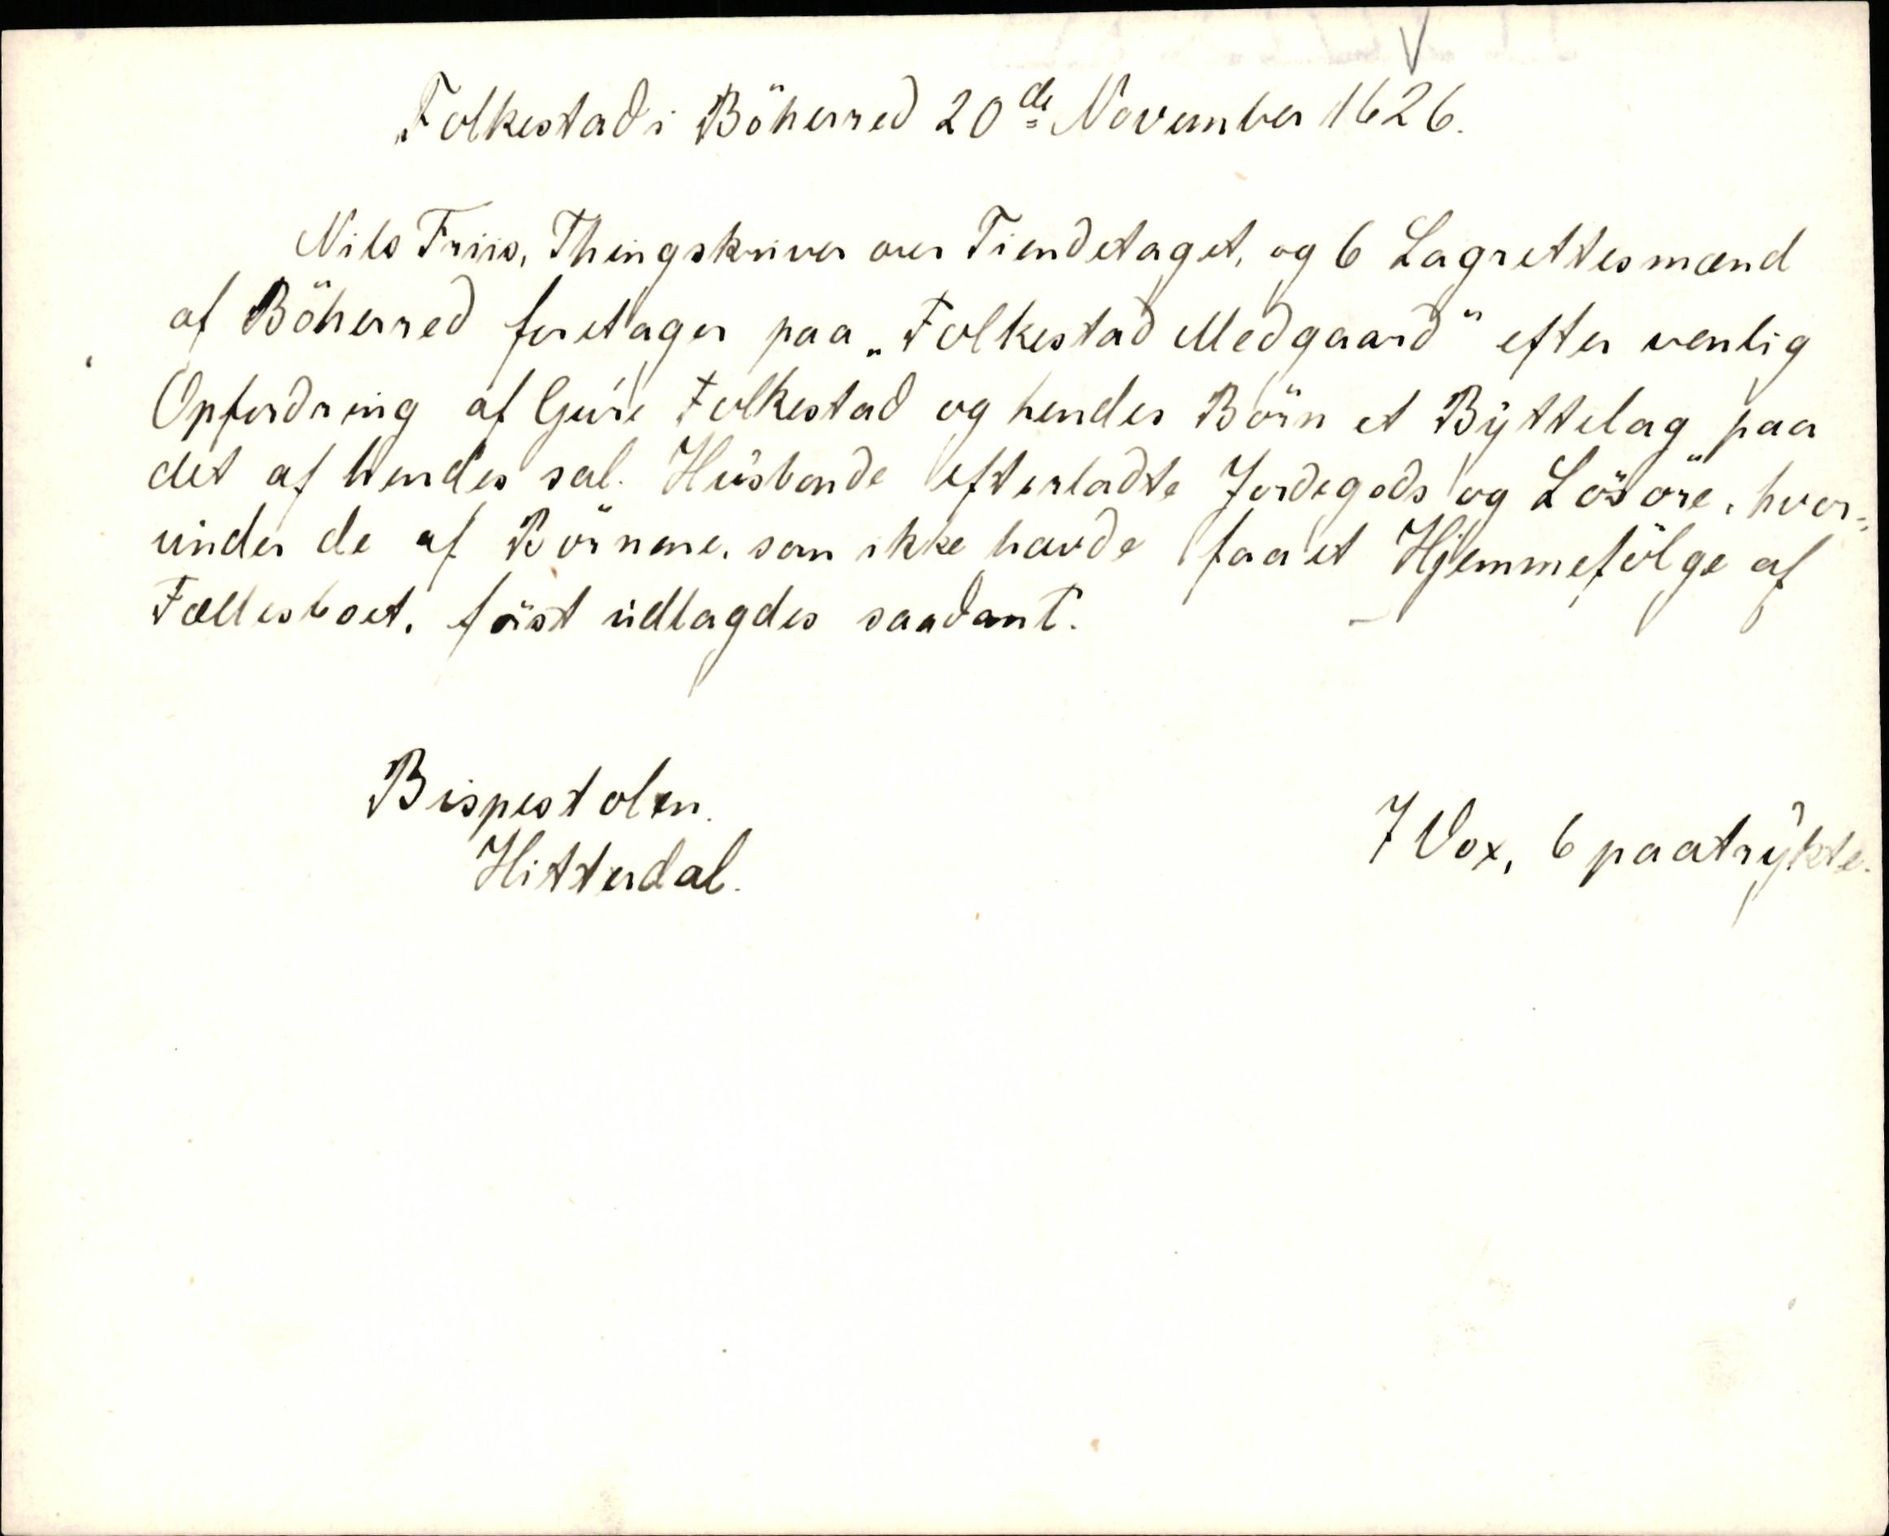 Folkestad i Böherred 20de November 1626.
Nils Friis, Thingskriver over Tiendetaget, og 6 Lagrettesmænd
af Böherred foretager paa „Folkestad Medgaard" efter venlig
Opfordring af Guri Folkestad og hendes Börn et Byttelag paa
det af hendes sal. Husbonde efterladte Jordegods og Lösöre, hvor=
under de af Börnene, som ikke havde faaet Hjemmefölge af
Fællesboet, först udlagdes saadant.
Bispestolen.
Hitterdal.
7 Vox, 6 paatrykte.